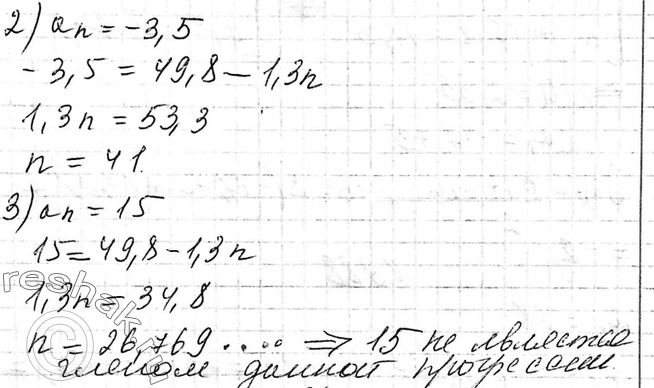 2) an = -3,5
-3,5 = 49,8 - 1,3n
1,3n = 53,3
n = 41.
3) an = 15
15 = 49,8 - 1,3n
1,3n = 34,8
n = 26,769.... ⇒ 15 не является
членом данной прогрессии
reshak.ru